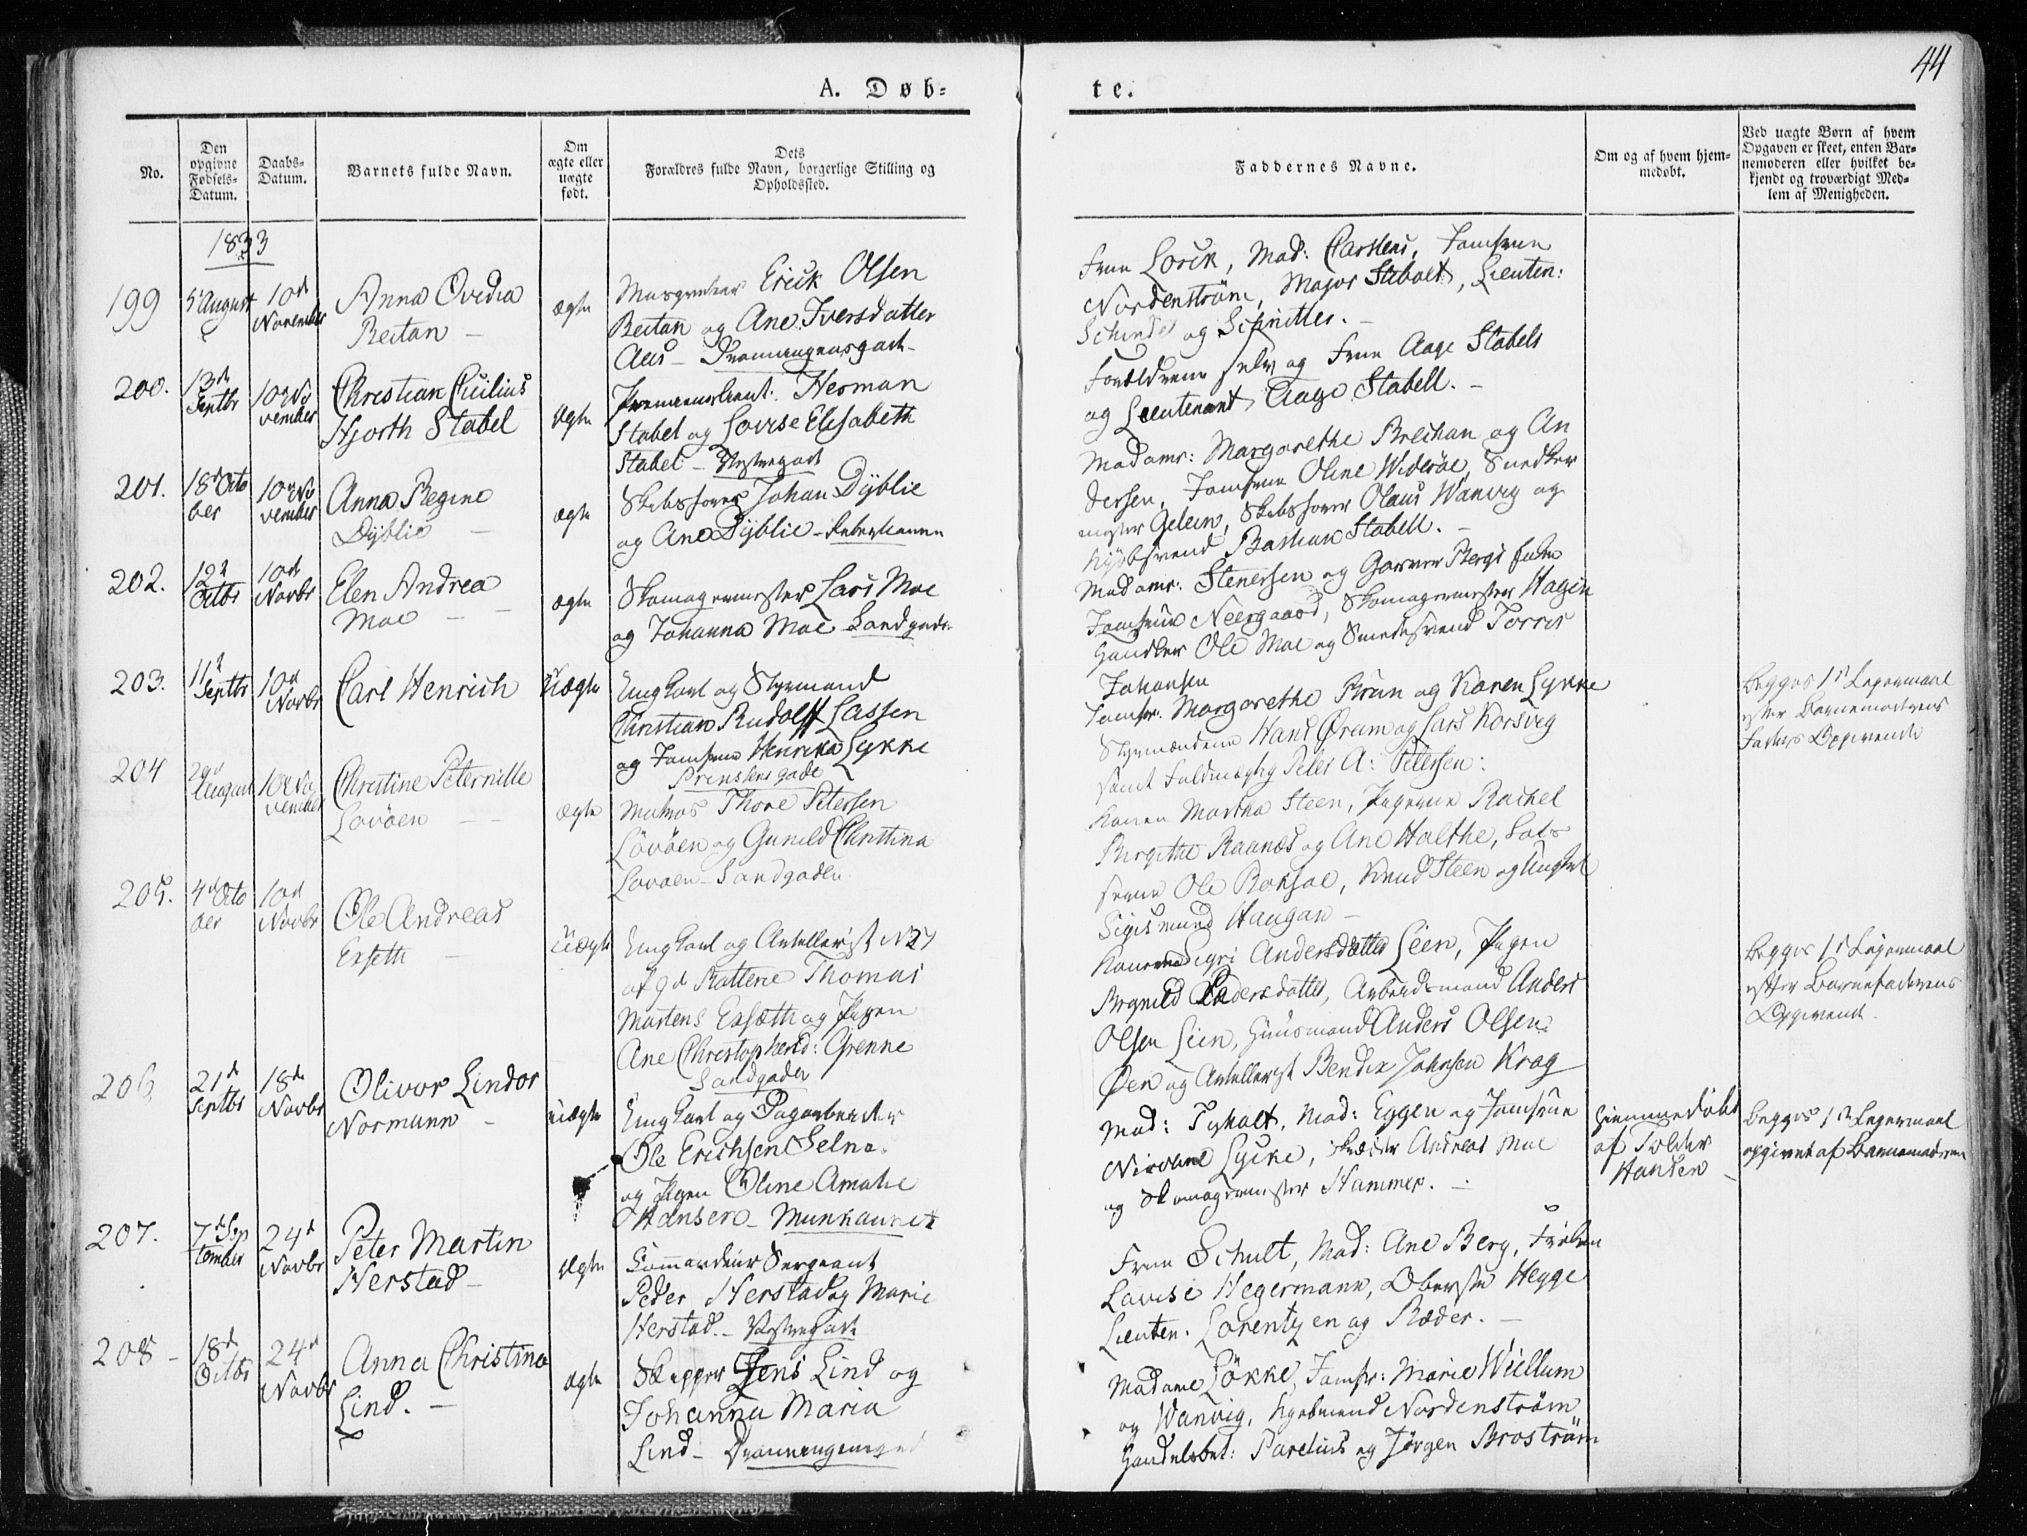 44
A. Døb-
te.
No.
Den
opgivne
Fødsels-
Datum.
Daabs-
Datum.
Barnets fulde Navn.
Om
ægte eller
uægte
født.
Dets
Forældres fulde Navn, borgerlige Stilling og
Opholdssted.
Faddernes Navne.
Om og af hvem hjem-
medøbt.
Ved uægte Børn af hvem
Opgaven er skeet, enten Bar-
nemoderen eller hvilket be-
kjendt og troværdigt Med-
lem af Menigheden.
1833
199
5 August
10d
November
Anna Ovidia
Reitan
ægte
Erick Olsen
Reitan og Ane Iversdatter
Aas - Dronningensgade
Frue Lorck, Mad: Carstens, Jomfrue
Nordenstrøm, Major Stabolt, Lieuten:
og Schnitler.
200.
13de
Septbr
10 No
vember
Christian Cicilius
Hjorth Stabel
Ægte
Premierlieut. Herman
Stabel og Lovise Elisabeth
Stabel - Vestregade
Forældrene selv og Frue Aage Stabels
og Lieutenant Aage Stabell.
201.
18 Octo
ber
10 No
vember
Anna Regine
Dyblie
ægte
Skibsfører Johan Dyblie
og Ane Dyblie -
Madame: Margarethe Brechan og An
dersen, Jomfrue Oline Widerøe, Snedker
mester Gelein, Skibsfører Olaus Wanvig og
Bastian Stabell.
202.
12
Octbr
10d
Novbr
Elen Andrea
Moe
ægte
Skomagermester Lars Moe
og Johanna Moe Sandgade
Madame: Stenersen og Garver Bergs
Jomfrue Neergaard, Skomagermester Hagen
Handler Ole Moe og Smedesvend Torris
Johansen
203.
11
Septbr
10d
Novbr
Carl Henrich
Uægte
Ungkarl og Styrmand
Christian Rudolff Lassen
og Jomfrue Henrika Lykke
Prinsensgade
Jomfr: Margarethe Brun og Karen Lykke
Styrmændene Hans Ørum og Lars Korsveg
samt Fuldmægtig Peter A: Petersen.
Begges 1st Leiermaal
efter Barnemoderens
Faders Opgivende
204
29
August
10 No
vember
Christine Peternille
Lovøen
ægte
Matros Thore Petersen
Lövöen og Gunild Christina
Lovøen - Sandgaden
Konen Martha Steen, Pigerne Rachel
Birgithe Raanæs og Ane Holthe,
Ole Roksæe, Knud Steen og Ungkarl
Sigismund Haugan
205.
4 Octo
ber
10d
Novbr
Ole Andreas
Exseth
Uægte
Ungkarl og Artillerist No 27
af 9d Batterie Thomas
Mortens Exsæth og Pigen
Ane Christophersd: Grenne
Sandgaden
Konerne Sigri Andersdatter Leen, Pigen
Brynild Pedersdatter, Arbeidsmand Anders
Olsen Leen, Huusmand Anders Olsen
Øen og Artillerist Bendix Johnsen Krog
Begges 1st Leiermaal
efter Barnefaderens
Opgivende
206.
21d
Septbr
18de
Novbr
Olivor Lindor
Normann
uægte
Ungkarl og
Ole Erichsen Selnæ
og Pigen Oline Amalie
Hansen - Munkaunet
Mad: Tyholt, Mad: Eggen og Jomfrue
Nicoline Lycke, Skræder Andreas Moe
og Skomagermester Hammer.
Hjemmedøbt
af Tolder
Hansen
Begges 1st Leiermaal
opgivet af Barnemoderen
207.
7de Sep
tember
24d
Novbr
Peter Martin
Herstad
ægte
Commandeur Sergeant
Peder Herstad og Marie
Herstad - Vestregade
Frue Schult, Mad: Ane Berg, Frøken
Lovise Hegermann, Oberste Hegge
Lieuten. Lorentzen og Ræder.
208
18d
Octbr
24d
Novbr
Anna Christina
Lind.
ægte
Skipper Jens Lind og
Johanna Maria
Lind - Dronningensgade
Madame Lökke, Jomfr: Marie Willum
og Wanvig, Kjøbmand Nordenstrøm
Handelsbet: Parelius og Jørgen Broström